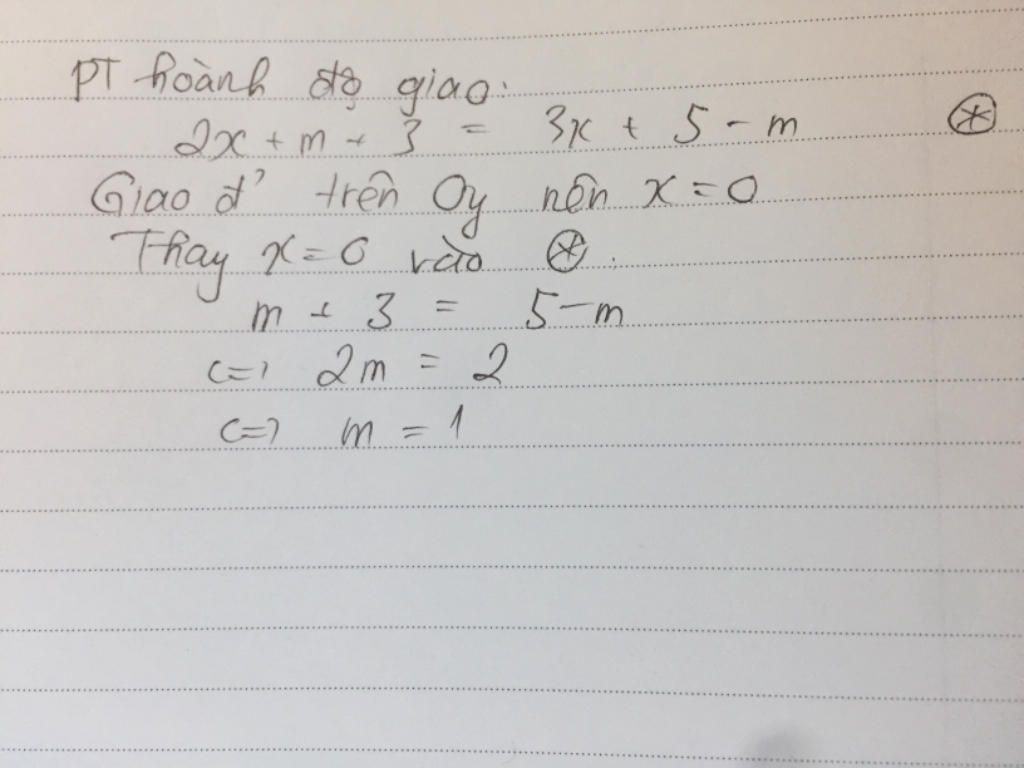 PT hoành độ giao:
2x + m + 3 = 3x + 5 - m ⊛
Giao đ' trên Oy nên x = 0
Thay x = 0 vào ⊛.
m + 3 = 5 - m
<=> 2m = 2
<=> m = 1